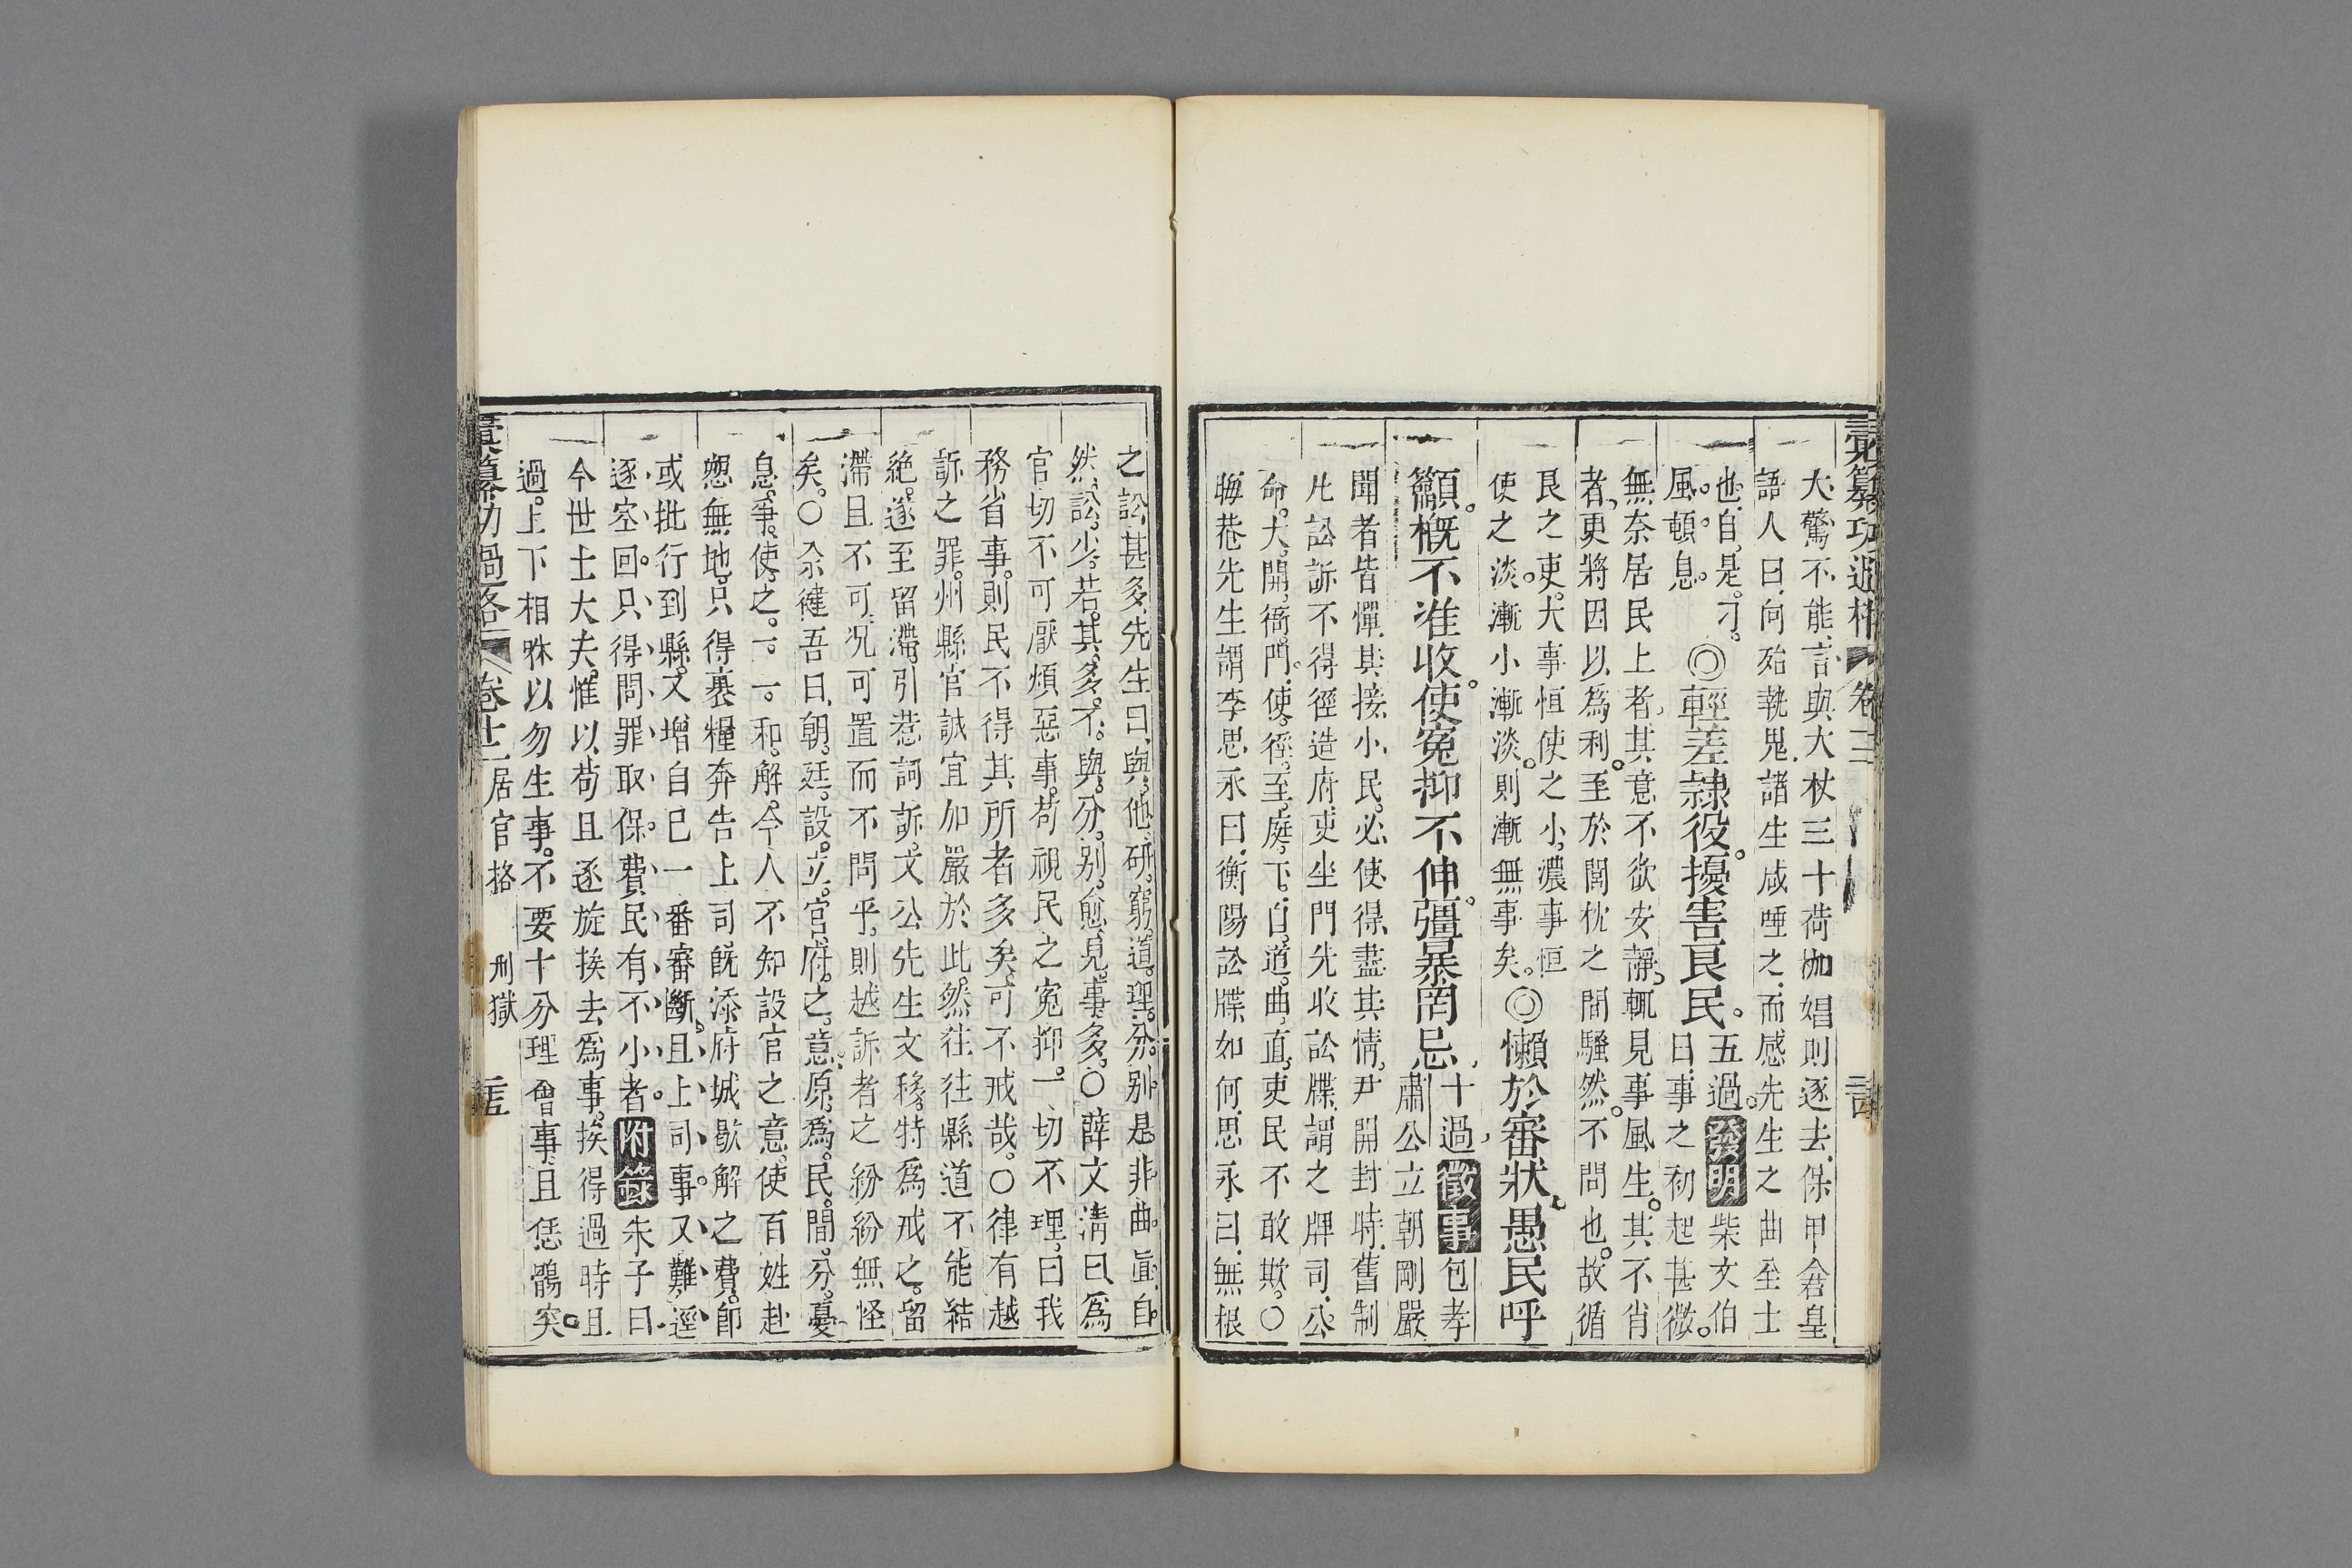 彙纂功過格 卷二
大驚不能言與大杖三十荷枷娼則逐去保甲余皇
語人曰何殆執鬼諸生咸唾之而感先生之曲至士
也自是刁
風頓息
◎輕差隸役擾害良民五過
發明
柴文伯
曰事之初起甚微
無奈居民上者其意不欲安靜輒見事風生其不肖
者更將因以爲利至於閭枕之間騷然不問也故循
良之吏大事恒使之小濃事恒
使之淡漸小漸淡則漸無事矣
◎懶於審狀愚民呼
籲概不准收使寃抑不伸彊暴罔忌
十過
徵事
包孝
肅公立朝剛嚴
聞者皆憚其接小民必使得盡其情尹開封時舊制
凡訟訴不得徑造府吏坐門先收訟牒謂之牌司公
命大開衙門使徑至庭下自道曲直吏民不敢欺○
晦菴先生謂李思永曰衡陽訟牒如何思永曰無根
之訟甚多先生曰與他研窮道理分別是非曲直自
然訟少若其多不與分別愈見事多○薛文清曰爲
官切不可厭煩惡事苟視民之寃抑一切不理曰我
務省事則民不得其所者多矣可不戒哉○律有越
訴之罪州縣官誠宜加嚴於此然往往縣道不能結
絕遂至留滯引惹詞訴文公先生文移特爲戒之留
滯且不可況可置而不問乎則越訴者之紛紛無怪
矣○余健吾曰朝廷設立官府之意原爲民間分憂
息爭使之一一和解今人不知設官之意使百姓赴
愬無地只得裹糧奔告上司旣添府城歇解之費卽
或批行到縣又增自已一番審斷且上司事又難逕
逐空回只得問罪取保費民有不小者
附錄
朱子曰
今世士大夫惟以苟且逐旋挨去爲事挨得過時且
過上下相咻以勿生事不要十分理會事且恁鶻突
彙纂功過格 卷十一 居官格 刑獄